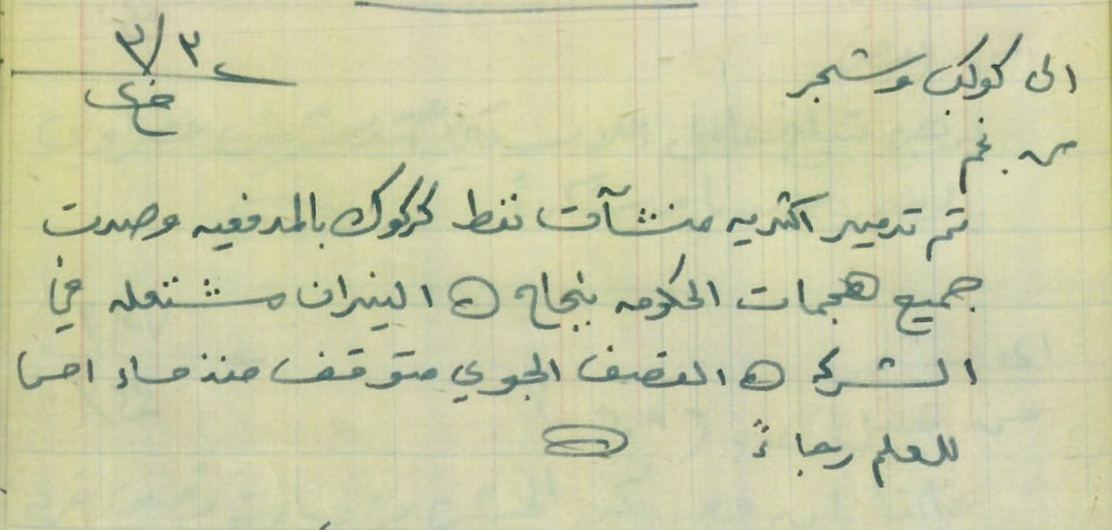 ٣/٣٠
الى كوكب وسنجر
من نجم
تم تدمير اكثريه منشآت نفط كركوك بالمدفعيه وصدت
جميع هجمات الحكومه بنجاح ۵ النيران مشتعله في
الشركه ۵ القصف الجوي متوقف منذ مساء امس
للعلم رجاءً